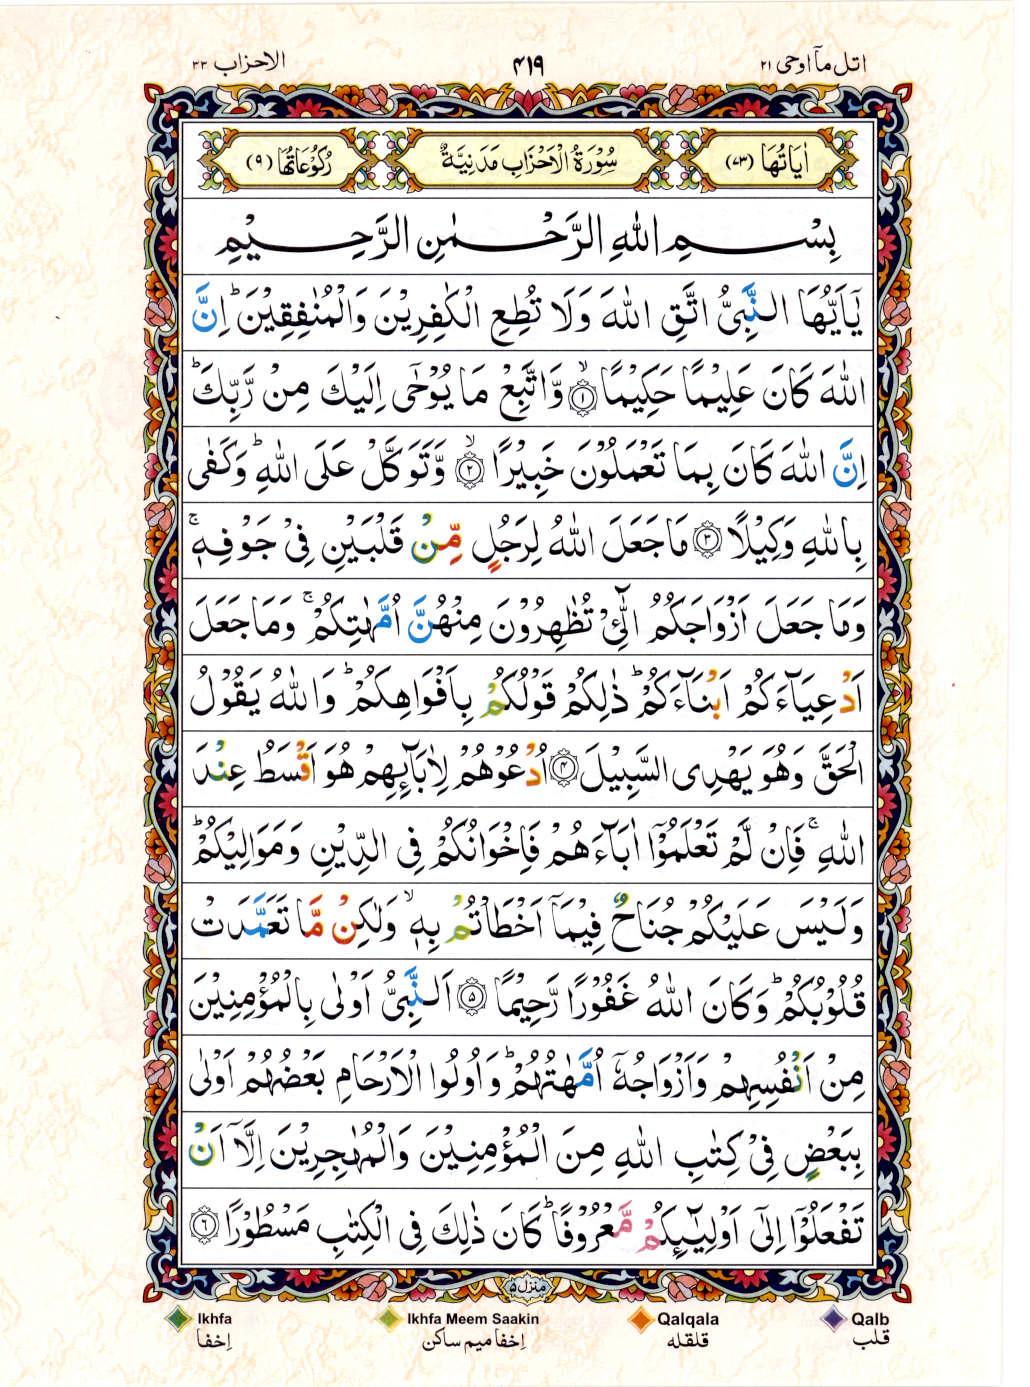 اتل مآ اوحی ۲۱
۴۱۹
الاحزاب ۳۳
اٰيَاتُهَا (۷۳)
سُوْرَةُ الْاَحْزَابِ مَدَنِيَّةٌ
رُكُوْعَاتُهَا (۹)
بِسْمِ اللّٰهِ الرَّحْمٰنِ الرَّحِيْمِ
يٰۤاَيُّهَا النَّبِىُّ اتَّقِ اللّٰهَ وَلَا تُطِعِ الْكٰفِرِيْنَ وَالْمُنٰفِقِيْنَ ؕ اِنَّ
اللّٰهَ كَانَ عَلِيْمًا حَكِيْمًا ۙ‏﴿۱﴾ وَّاتَّبِعْ مَا يُوْحٰٓى اِلَيْكَ مِنْ رَّبِّكَ ؕ
اِنَّ اللّٰهَ كَانَ بِمَا تَعْمَلُوْنَ خَبِيْرًا ۙ‏﴿۲﴾ وَّتَوَكَّلْ عَلَى اللّٰهِ ؕ وَكَفٰى
بِاللّٰهِ وَكِيْلًا ﴿۳﴾ مَا جَعَلَ اللّٰهُ لِرَجُلٍ مِّنْ قَلْبَيْنِ فِىْ جَوْفِهٖ ۚ
وَمَا جَعَلَ اَزْوَاجَكُمُ الّٰٓئِْ تُظٰهِرُوْنَ مِنْهُنَّ اُمَّهٰتِكُمْ ۚ وَمَا جَعَلَ
اَدْعِيَآءَكُمْ اَبْنَآءَكُمْ ؕ ذٰلِكُمْ قَوْلُكُمْ بِاَفْوَاهِكُمْ ؕ وَاللّٰهُ يَقُوْلُ
الْحَقَّ وَهُوَ يَهْدِى السَّبِيْلَ ﴿۴﴾ اُدْعُوْهُمْ لِاٰبَآئِهِمْ هُوَ اَقْسَطُ عِنْدَ
اللّٰهِ ۚ فَاِنْ لَّمْ تَعْلَمُوْۤا اٰبَآءَهُمْ فَاِخْوَانُكُمْ فِى الدِّيْنِ وَمَوَالِيْكُمْ ؕ
وَلَيْسَ عَلَيْكُمْ جُنَاحٌ فِيْمَاۤ اَخْطَاْتُمْ بِهٖ ۙ وَلٰكِنْ مَّا تَعَمَّدَتْ
قُلُوْبُكُمْ ؕ وَكَانَ اللّٰهُ غَفُوْرًا رَّحِيْمًا ﴿۵﴾ اَلنَّبِىُّ اَوْلٰى بِالْمُؤْمِنِيْنَ
مِنْ اَنْفُسِهِمْ وَاَزْوَاجُهٗۤ اُمَّهٰتُهُمْ ؕ وَاُولُوا الْاَرْحَامِ بَعْضُهُمْ اَوْلٰى
بِبَعْضٍ فِىْ كِتٰبِ اللّٰهِ مِنَ الْمُؤْمِنِيْنَ وَالْمُهٰجِرِيْنَ اِلَّاۤ اَنْ
تَفْعَلُوْۤا اِلٰٓى اَوْلِيٰٓئِكُمْ مَّعْرُوْفًا ؕ كَانَ ذٰلِكَ فِى الْكِتٰبِ مَسْطُوْرًا ﴿۶﴾
منزل ۵
Ikhfa
Ikhfa Meem Saakin
Qalqala
Qalb
اِخفا
اِخفا میم ساکن
قلقله
قلب